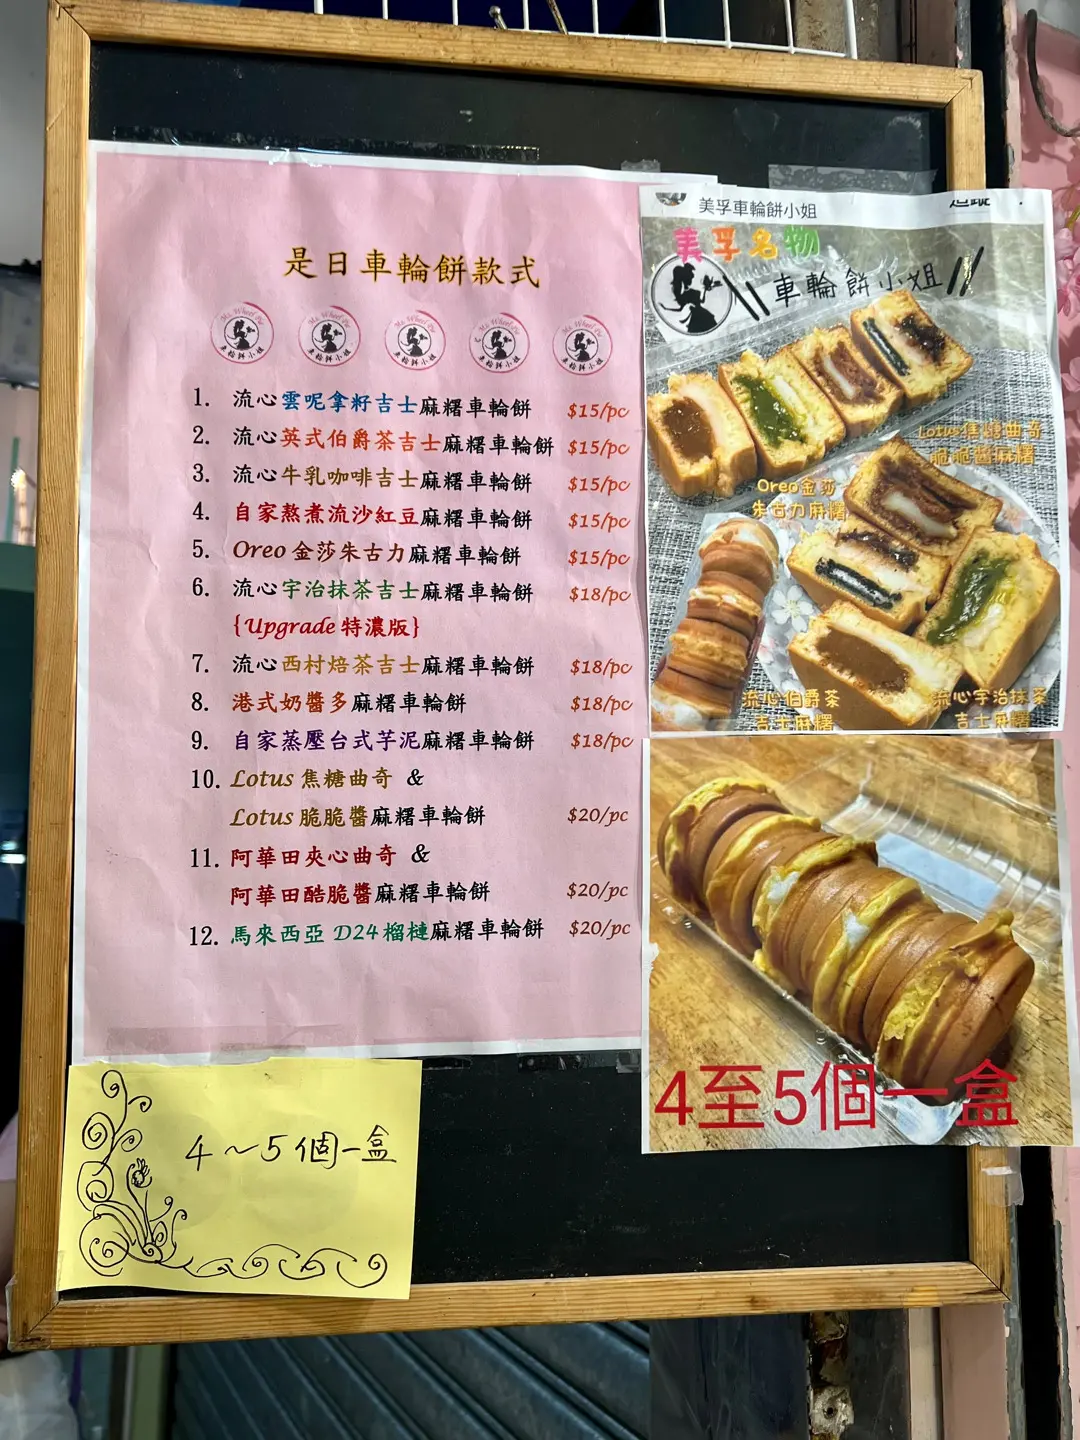 是日車輪餅款式
Ms. Wheel Pie
車輪餅小姐
Ms. Wheel Pie
車輪餅小姐
Ms. Wheel Pie
車輪餅小姐
Ms. Wheel Pie
車輪餅小姐
Ms. Wheel Pie
車輪餅小姐
1. 流心雲呢拿籽吉士麻糬車輪餅 $15/pc
2. 流心英式伯爵茶吉士麻糬車輪餅 $15/pc
3. 流心牛乳咖啡吉士麻糬車輪餅 $15/pc
4. 自家熬煮流沙紅豆麻糬車輪餅 $15/pc
5. Oreo 金莎朱古力麻糬車輪餅 $15/pc
6. 流心宇治抹茶吉士麻糬車輪餅 $18/pc
{Upgrade 特濃版}
7. 流心西村焙茶吉士麻糬車輪餅 $18/pc
8. 港式奶醬多麻糬車輪餅 $18/pc
9. 自家蒸壓台式芋泥麻糬車輪餅 $18/pc
10. Lotus 焦糖曲奇 &
Lotus 脆脆醬麻糬車輪餅 $20/pc
11. 阿華田夾心曲奇 &
阿華田酷脆醬麻糬車輪餅 $20/pc
12. 馬來西亞 D24 榴槤麻糬車輪餅 $20/pc
4～5個一盒
美孚車輪餅小姐
追蹤
美孚名物
車輪餅小姐
Lotus焦糖曲奇
脆脆醬麻糬
Oreo金莎
朱古力麻糬
流心伯爵茶
吉士麻糬
流心宇治抹茶
吉士麻糬
4至5個一盒